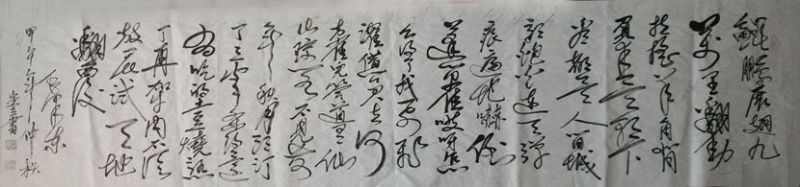 鲲鹏展翅九
万里翻动
扶摇羊角背
负青天朝下
看都是人间城
郭炮火连天弹
痕遍地嚇倒
蓬间雀哎呀怎
么得了我要飞
跃借问君去何
方雀儿答道有仙
山琼阁不见前
年秋月朗订
了三家条约还
有吃的土豆烧熟
了再加牛肉不须
放屁试看天地
翻覆
毛泽东
甲午年仲秋
書